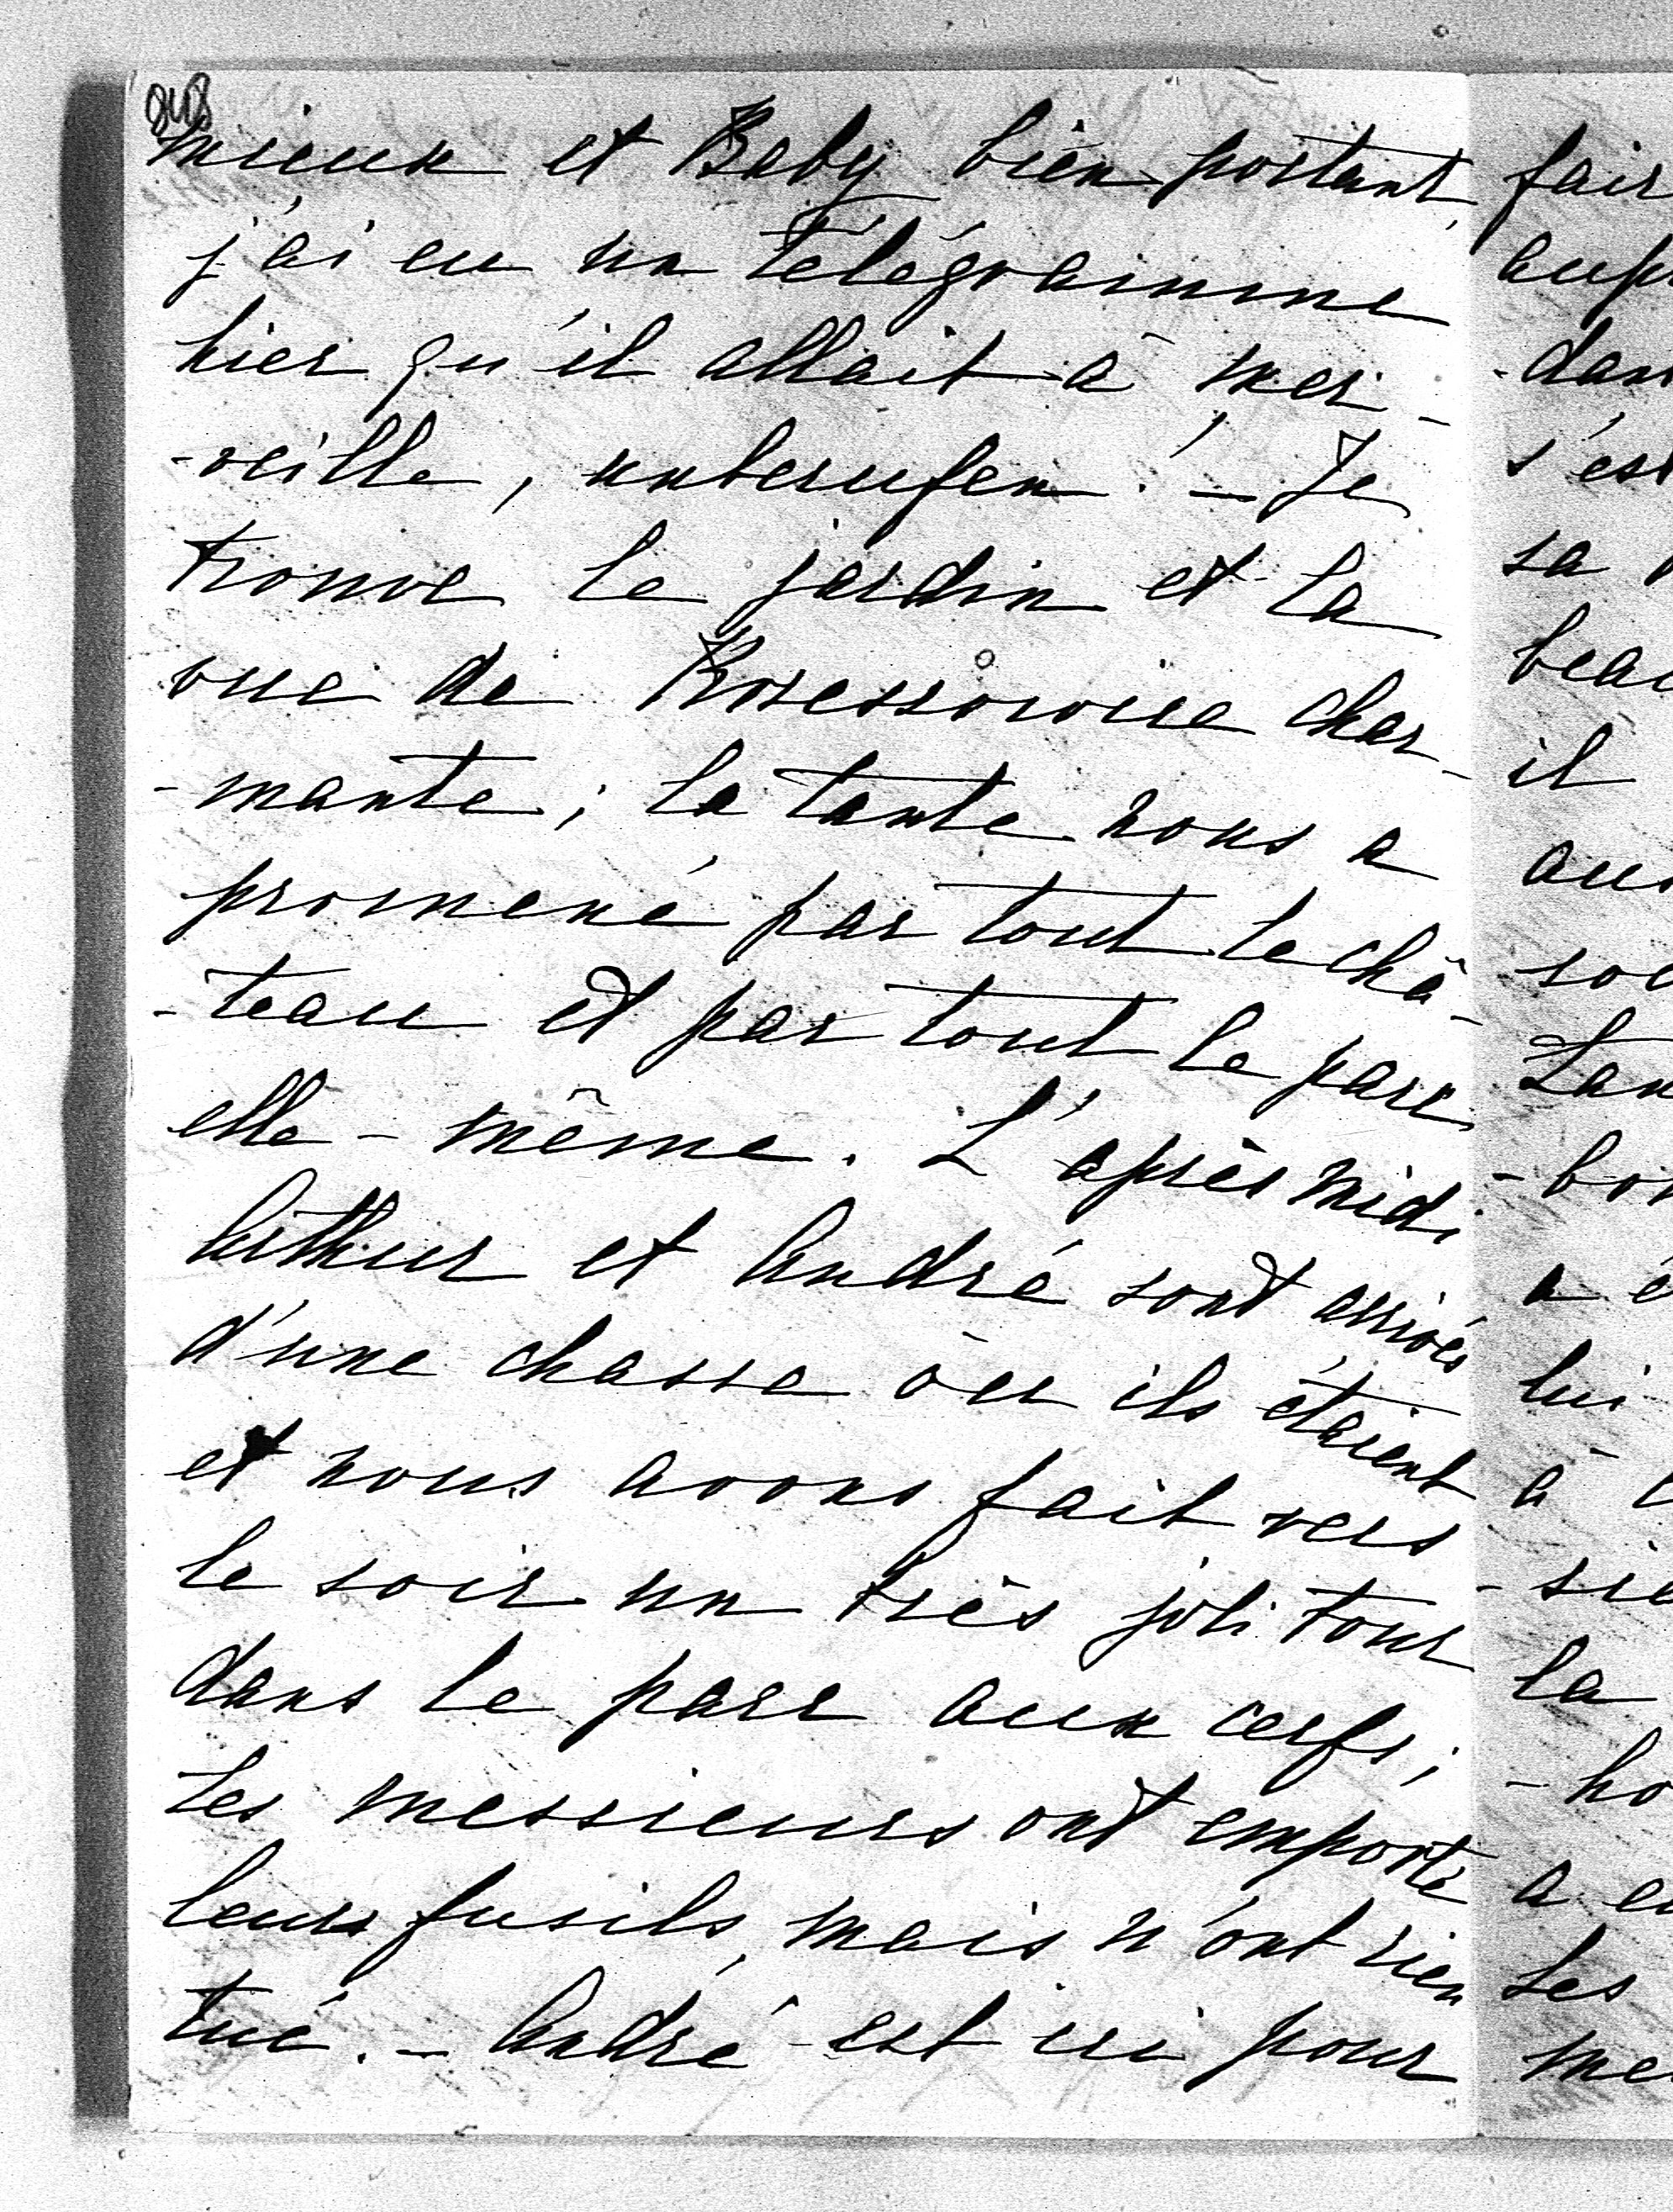 848
mieux et Baby bien portant,
j'ai eu un télégramme
hier qu'il allait à mer-
-veille, unberufen! – Je
trouve le jardin et la
vue de char-
-mante; la tante nous a
promené par tout le châ-
-teau et par tout le parc
elle-même. L'après midi
Arthur et André sont arrivés
d'une chasse où ils étaient
et nous avons fait vers
le soir un très joli tour
dans le parc aux cerfs;
les messieurs ont emporté
leurs fusils, mais n'ont rien
tué. – André est ici pour